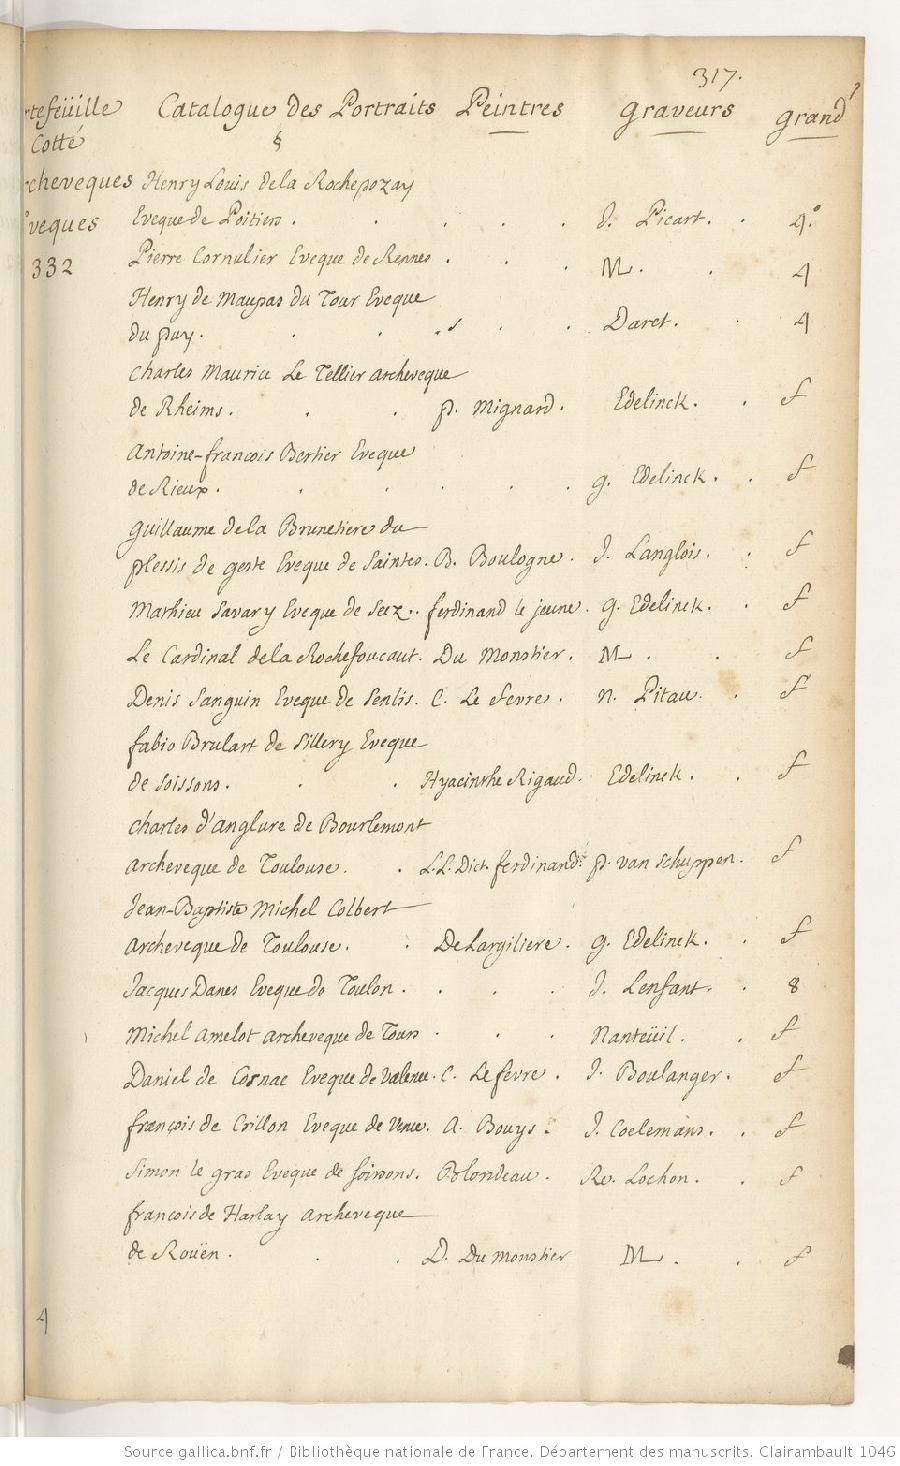 317.
rtefeüille Catalogue des Portraits Peintres Graveurs grand^r
Cotté §
rcheveques Henry Louis dela Rochepozay
veques Eveque de Poitiers . . . . . J. Picart . . 4.°
332 Pierre Cornulier Eveque de Rennes . . . M . . 4
Henry de Maupas du Tour Eveque
du puy . . . . . . . Daret . . 4
Charles Maurice Le Tellier archeveque
de Rheims . . . p. Mignard . Edelinck . . f
Antoine-françois Bertier Eveque
de Rieux . . . . . . g. Edelinck . . f
Guillaume dela Brunetiere du
plessis de geste Eveque de Saintes . B. Boulogne . J. Langlois . . f
Mathieu Savary Eveque de Seez . . ferdinand le jeune . g. Edelinck . . f
Le Cardinal dela Rochefoucaut . Du Monstier . M . . f
Denis Sanguin Eveque de Senlis . C. Le fevre . n. Pitau . . f
fabio Brulart de Sillery Eveque
de Soissons . . . Hyacinthe Rigaud . Edelinck . . f
Charles d'Anglure de Bourlemont
archeveque de Toulouse . . L. L. Dict. ferdinand . p. van Schuppen . f
Jean-Baptiste Michel Colbert
archeveque de Toulouse . . De Largiliere . g. Edelinck . . f
Jacques Danes Eveque de Toulon . . . . J. Lenfant . . 8
Michel Amelot archeveque de Tours . . . Nanteüil . . f
Daniel de Cosnac Eveque de Valence . C. Le fevre . J. Boulanger . f
françois de Crillon Eveque de Vence . A. Bouys . J. Coelemans . . f
Simon le gras Eveque de soissons . Blondeau . Re. Lochon . . f
francois de Harlay Archeveque
de Roüen . . . D. Du monstier M . . f
4
Source gallica.bnf.fr / Bibliothèque nationale de France. Département des manuscrits. Clairambault 1046